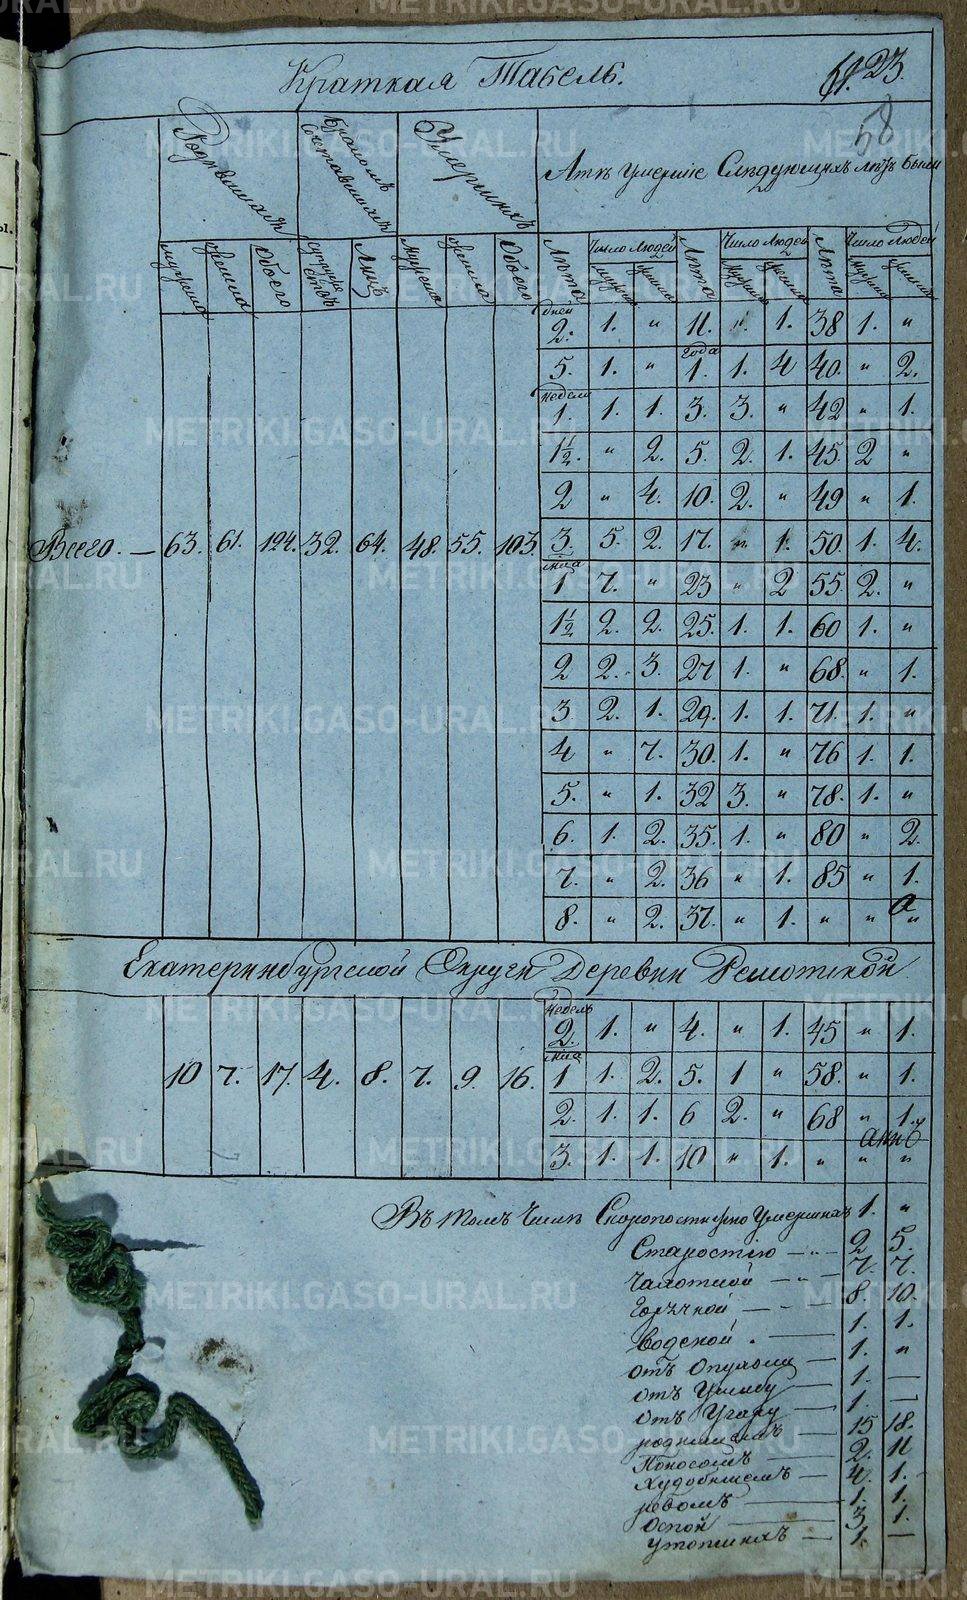 Краткая Табель.
61. 23.
58
Родившихся
Бракомъ Сочетавшихся
Умершихъ
Лѣта умершіе Слѣдующихъ лѣтъ были
мужеска женска Обоего супружествъ Лицъ мужеска женска Обоего Лѣта Число Людей мужеска женска Лѣта Число Людей мужеска женска Лѣта Число Людей мужеска женска
дней 2. 1. " 11. " 1. 38 1. "
5. 1. " года 1. 1. 4 40. " 2.
недели 1. 1. 1. 3. 3. " 42 " 1.
1½. " 2. 5. 2. 1. 45. 2 "
2 " 4. 10. 2. " 49 " 1.
Всего. — 63. 61. 124. 32. 64. 48. 55. 103. 3. 5. 2. 17. " 1. 50. 1. 4.
мца 1 7. " 23 " 2 55. 2. "
1½ 2. 2. 25. 1. 1. 60 1. "
2 2. 3. 27 1. " 68. " 1.
3. 2. 1. 29. 1. 1. 71. 1. "
4 " 7. 30. 1. " 76 1. 1.
5. " 1. 32 3. " 78. 1. "
6. 1. 2. 35. 1. " 80 " 2.
7. " 2. 36 " 1. 85 " 1.
8. " 2. 37. " 1. " " "
Екатеринбургской Округи Деревни Решоткой
недель 2. 1. " 4. " 1. 45 " 1.
10 7. 17. 4. 8. 7. 9. 16. мца 1 1. 2. 5. 1 " 58. " 1.
2. 1. 1. 6 2. " 68 " 1.
3. 1. 1. 10 " 1. " " "
Въ томъ Числѣ Скоропостижно Умершихъ 1. "
Старостію — 2 5.
Чахоткой — 7. 7.
Горячкой — 8. 10.
Водяной. — 1. 1.
отъ Опухоли — 1. "
отъ Ушибу — 1. —
отъ Угару — 1. —
родимцемъ 15 18.
Поносомъ — 2. 11
Худобищемъ — 4. 1.
— 1. 1.
Оспой — 3 1.
утопшихъ — 1. —
METRIKI.GASO-URAL.RU